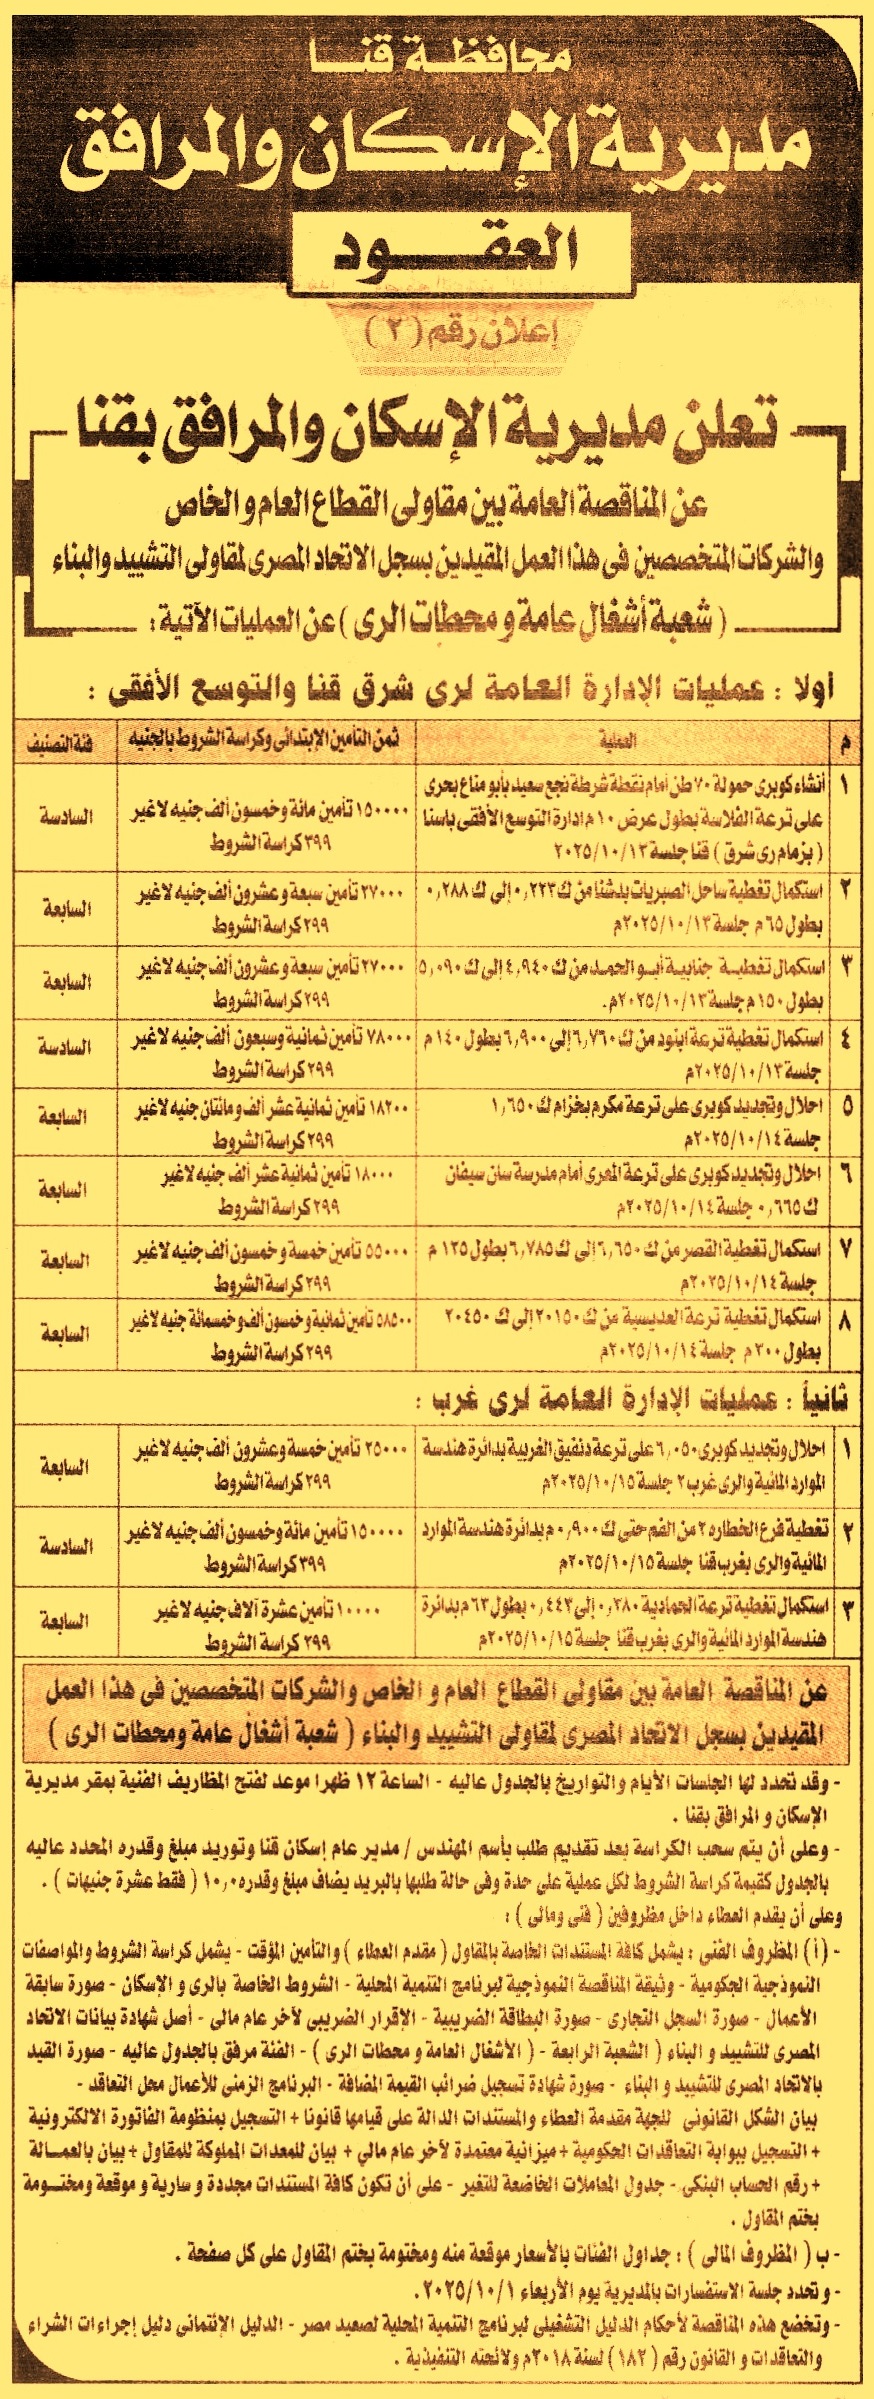 محافظة قنا
مديرية الإسكان والمرافق
العقود
إعلان رقم (٢)
تعلن مديرية الإسكان والمرافق بقنا
عن المناقصة العامة بين مقاولى القطاع العام والخاص
والشركات المتخصصين فى هذا العمل المقيدين بسجل الاتحاد المصرى لمقاولى التشييد والبناء
(شعبة أشغال عامة ومحطات الرى) عن العمليات الآتية:
أولا : عمليات الإدارة العامة لرى شرق قنا والتوسع الأفقى :
م العملية ثمن التأمين الإبتدائى وكراسة الشروط بالجنيه فئة التصنيف
١ أنشاء كوبرى حمولة ٧٠ طن أمام نقطة شرطة نجع سعيد بأبو مناع بحرى ١٥٠٠٠٠ تأمين مائة وخمسون ألف جنيه لاغير السادسة
على ترعة الفلاسة بطول عرض ١٠ م ادارة التوسع الأفقى باسنا ٣٩٩ كراسة الشروط
( بزمام رى شرق ) قنا جلسة ٢٠٢٥/١٠/١٣
٢ استكمال تغطية ساحل الصبريات بدشنا من ك ٠,٢٢٣ إلى ك ٠,٢٨٨ ٢٧٠٠٠ تأمين سبعة وعشرون ألف جنيه لاغير السابعة
بطول ٦٥ م جلسة ٢٠٢٥/١٠/١٣م ٢٩٩ كراسة الشروط
٣ استكمال تغطية جنابية أبو الحمد من ك ٤,٩٤٠ إلى ك ٥,٠٩٠ ٢٧٠٠٠ تأمين سبعة وعشرون ألف جنيه لاغير السابعة
بطول ١٥٠ م جلسة ٢٠٢٥/١٠/١٣م. ٢٩٩ كراسة الشروط
٤ استكمال تغطية ترعة ابنود من ك ٦,٧٦٠ إلى ٦,٩٠٠ بطول ١٤٠ م ٧٨٠٠٠ تأمين ثمانية وسبعون ألف جنيه لاغير السادسة
جلسة ٢٠٢٥/١٠/١٣م ٢٩٩ كراسة الشروط
٥ احلال وتجديد كوبرى على ترعة مكرم بخزام ك ١,٦٥٠ ١٨٢٠٠ تأمين ثمانية عشر ألف ومائتان جنيه لاغير السابعة
جلسة ٢٠٢٥/١٠/١٤م ٢٩٩ كراسة الشروط
٦ احلال وتجديد كوبرى على ترعة المعرى أمام مدرسة سان سيفان ١٨٠٠٠ تأمين ثمانية عشر ألف جنيه لاغير السابعة
ك ٠,٦٦٥ جلسة ٢٠٢٥/١٠/١٤م ٢٩٩ كراسة الشروط
٧ استكمال تغطية القصر من ك ٦,٦٥٠ إلى ك ٦,٧٨٥ بطول ١٣٥ م ٥٥٠٠٠ تأمين خمسة وخمسون ألف جنيه لاغير السابعة
جلسة ٢٠٢٥/١٠/١٤م ٢٩٩ كراسة الشروط
٨ استكمال تغطية ترعة العديسية من ك ٢٠١٥٠ إلى ك ٢٠٤٥٠ ٥٨٥٠٠ تأمين ثمانية وخمسون ألف وخمسمائة جنيه لاغير السابعة
بطول ٢٠٠ م جلسة ٢٠٢٥/١٠/١٤م ٢٩٩ كراسة الشروط
ثانياً : عمليات الإدارة العامة لرى غرب :
١ احلال وتجديد كوبرى ٦,٠٥٠ على ترعة دنفيق الغربية بدائرة هندسة ٢٥٠٠٠ تأمين خمسة وعشرون ألف جنيه لاغير السابعة
الموارد المائية والرى غرب ٢ جلسة ٢٠٢٥/١٠/١٥م ٢٩٩ كراسة الشروط
٢ تغطية فرع الخطاره ٢ من الفم حتى ك ٠,٩٠٠ م بدائرة هندسة الموارد ١٥٠٠٠٠ تأمين مائة وخمسون ألف جنيه لاغير السادسة
المائية والرى بغرب قنا جلسة ٢٠٢٥/١٠/١٥م ٣٩٩ كراسة الشروط
٣ استكمال تغطية ترعة الحمادية ٠,٣٨٠ إلى ٠,٤٤٣ بطول ٦٣ م بدائرة ١٠٠٠٠ تأمين عشرة آلاف جنيه لاغير السابعة
هندسة الموارد المائية والرى بغرب قنا جلسة ٢٠٢٥/١٠/١٥م ٢٩٩ كراسة الشروط
عن المناقصة العامة بين مقاولى القطاع العام و الخاص والشركات المتخصصين فى هذا العمل
المقيدين بسجل الاتحاد المصرى لمقاولى التشييد والبناء ( شعبة أشغال عامة ومحطات الرى )
- وقد تحدد لها الجلسات الأيام والتواريخ بالجدول عاليه - الساعة ١٢ ظهرا موعد لفتح المظاريف الفنية بمقر مديرية
الإسكان و المرافق بقنا .
- وعلى أن يتم سحب الكراسة بعد تقديم طلب بأسم المهندس / مدير عام إسكان قنا وتوريد مبلغ وقدره المحدد عاليه
بالجدول كقيمة كراسة الشروط لكل عملية على حدة وفى حالة طلبها بالبريد يضاف مبلغ وقدره ١٠,٠ ( فقط عشرة جنيهات ) .
وعلى أن يقدم العطاء داخل مظروفين ( فنى ومالى ) :
- (أ) المظروف الفنى : يشمل كافة المستندات الخاصة بالمقاول ( مقدم العطاء ) والتأمين المؤقت - يشمل كراسة الشروط والمواصفات
النموذجية الحكومية - وثيقة المناقصة النموذجية لبرنامج التنمية المحلية - الشروط الخاصة بالرى و الإسكان - صورة سابقة
الأعمال - صورة السجل التجارى - صورة البطاقة الضريبية - الإقرار الضريبى لآخر عام مالى - أصل شهادة بيانات الاتحاد
المصرى للتشييد و البناء ( الشعبة الرابعة - ( الأشغال العامة و محطات الرى ) - الفئة مرفق بالجدول عاليه - صورة القيد
بالاتحاد المصرى للتشييد و البناء - صورة شهادة تسجيل ضرائب القيمة المضافة - البرنامج الزمنى للأعمال محل التعاقد -
بيان الشكل القانونى للجهة مقدمة العطاء والمستندات الدالة على قيامها قانونا + التسجيل بمنظومة الفاتورة الالكترونية
+ التسجيل ببوابة التعاقدات الحكومية + ميزانية معتمدة لآخر عام مالي + بيان للمعدات المملوكة للمقاول + بيان بالعمالة
+ رقم الحساب البنكى - جدول المعاملات الخاضعة للتغير - على أن تكون كافة المستندات مجددة و سارية و موقعة ومختومة
بختم المقاول .
- ب ( المظروف المالى ) : جداول الفئات بالأسعار موقعة منه ومختومة بختم المقاول على كل صفحة .
- و تحدد جلسة الاستفسارات بالمديرية يوم الأربعاء ٢٠٢٥/١٠/١.
- وتخضع هذه المناقصة لأحكام الدليل التشغيلى لبرنامج التنمية المحلية لصعيد مصر - الدليل الإئتمانى دليل إجراءات الشراء
والتعاقدات و القانون رقم ( ١٨٢ ) لسنة ٢٠١٨م ولائحته التنفيذية .